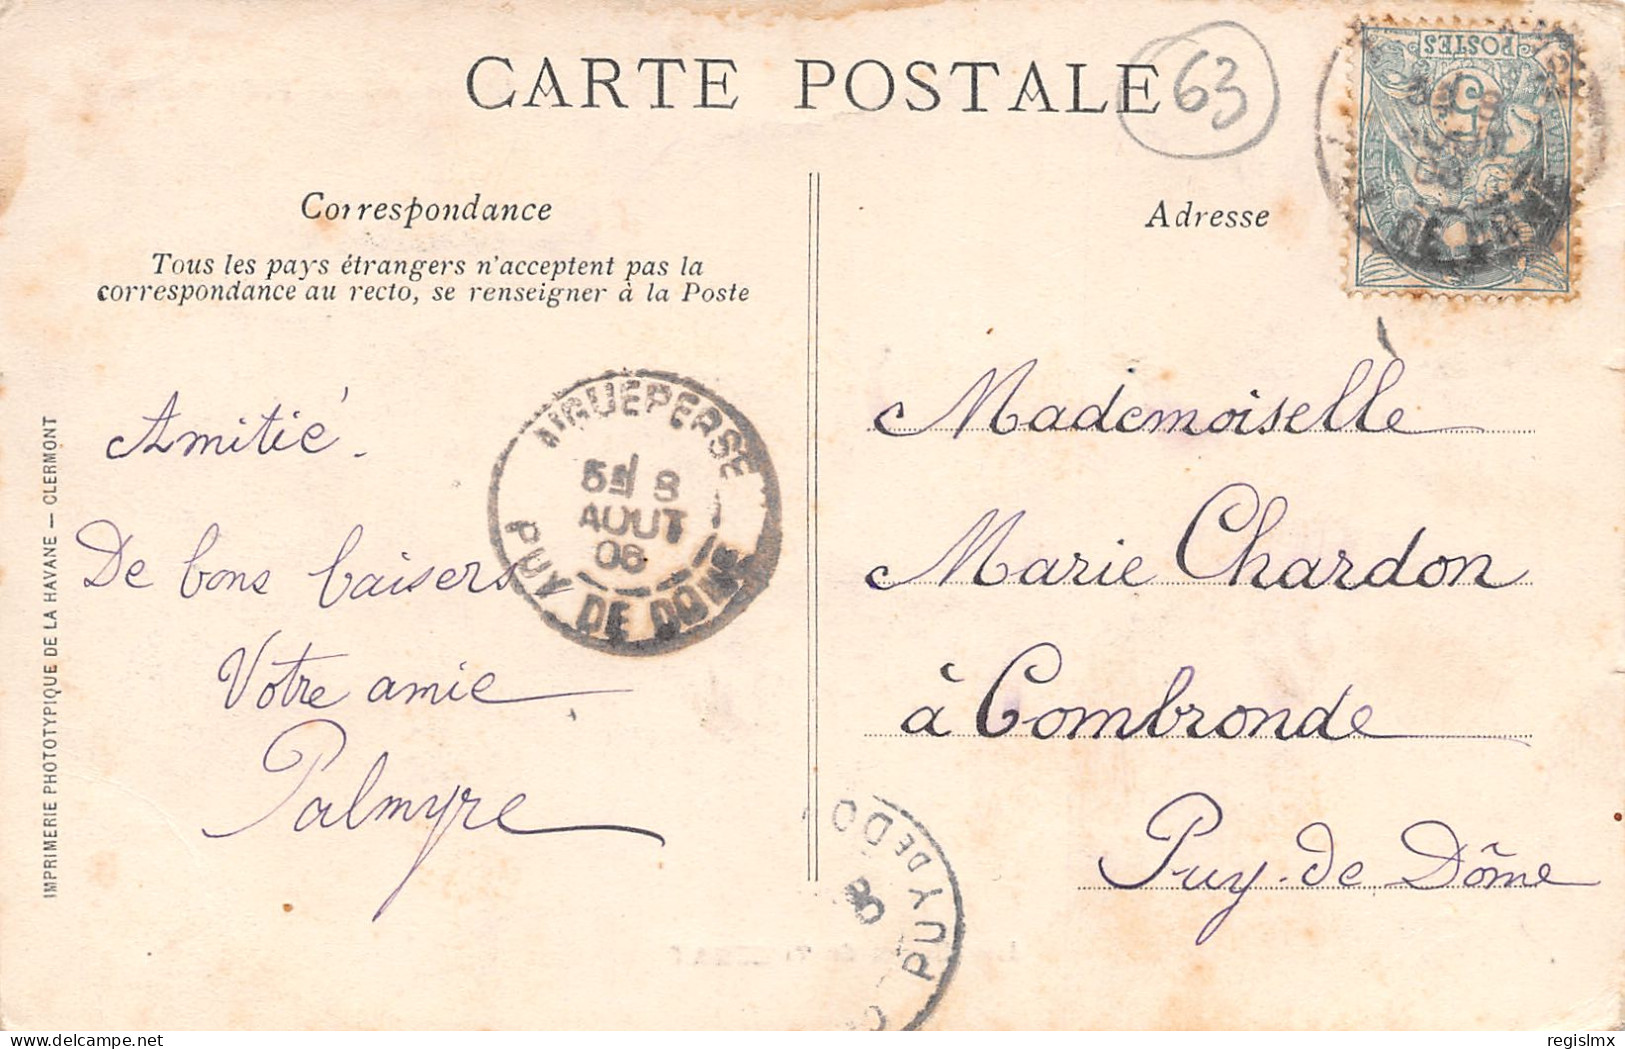 CARTE POSTALE
63
POSTES
5
Correspondance
Tous les pays étrangers n'acceptent pas la
correspondance au recto, se renseigner à la Poste
Amitié.
De bons baisers
Votre amie
Palmyre
AIGUEPERSE
8
AOUT
06
PUY DE DOME
IMPRIMERIE PHOTOTYPIQUE DE LA HAVANE — CLERMONT
Adresse
Mademoiselle
Marie Chardon
à Combronde
Puy-de Dôme
PUY DE DO
delcampe.net
regislmx